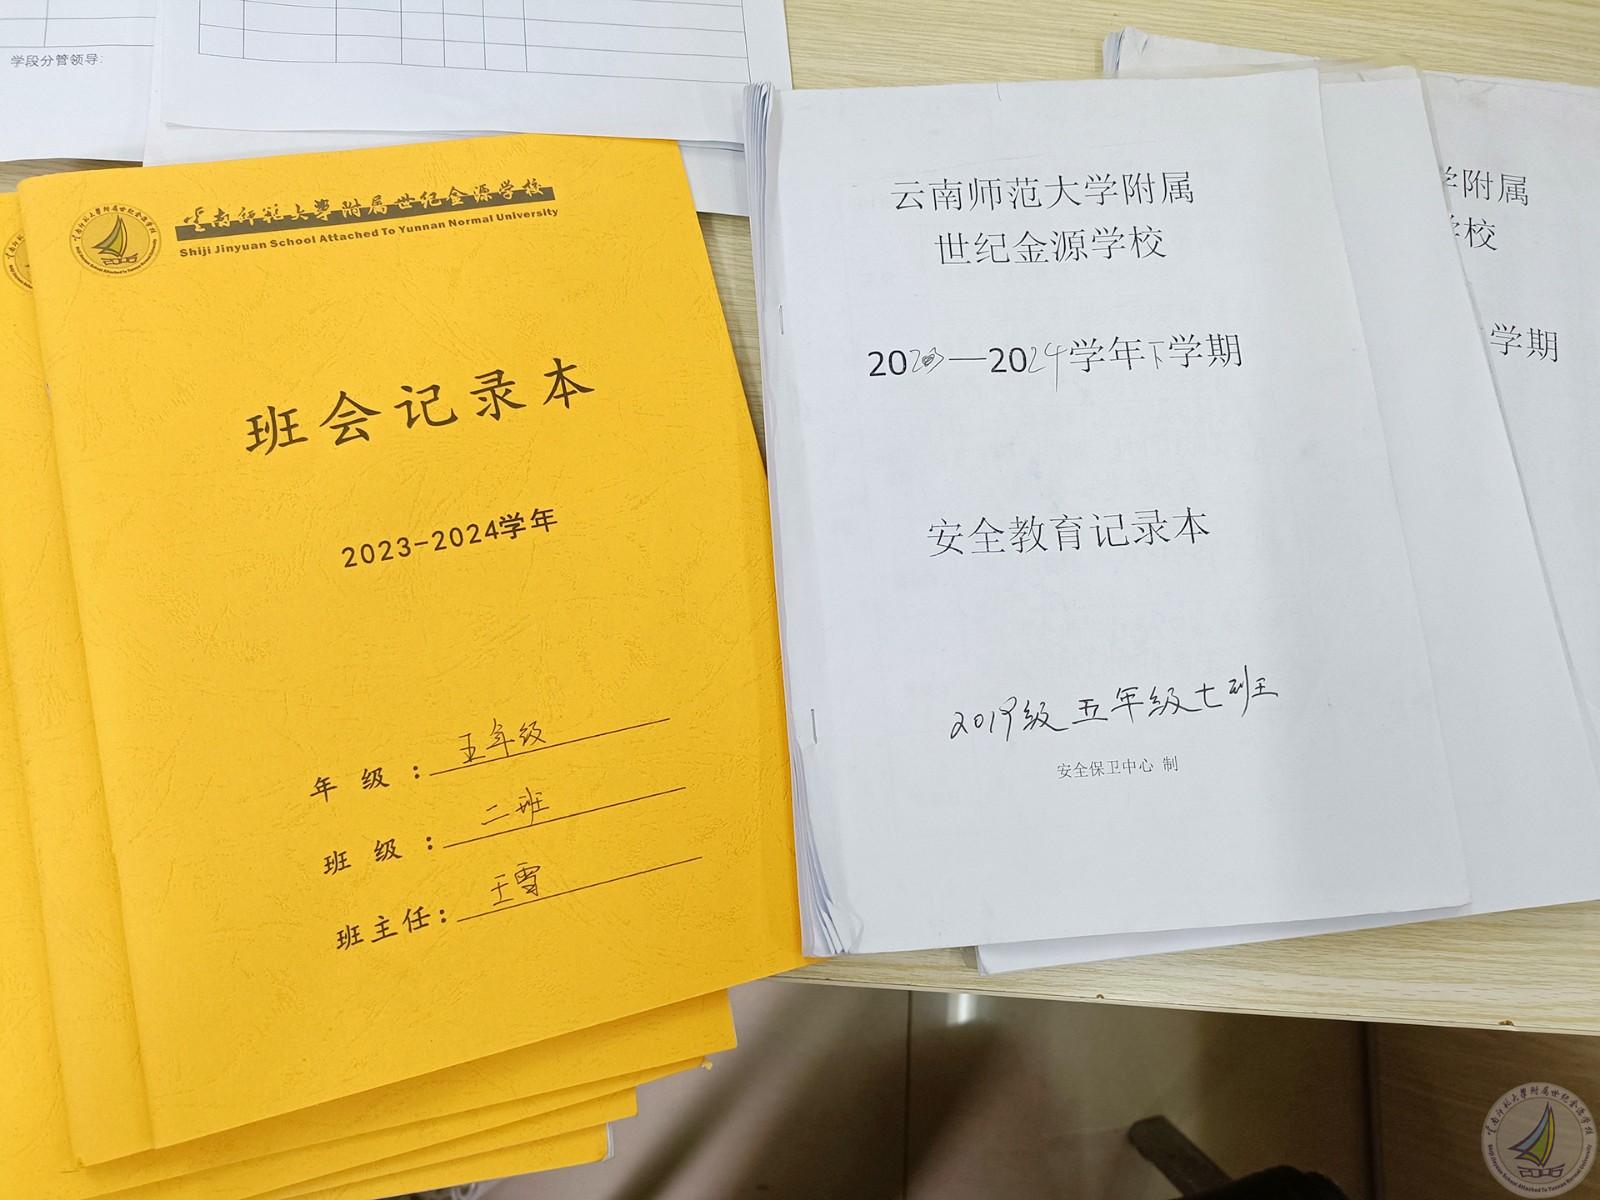 学段分管领导:
云南师范大学附属世纪金源学校
Shiji Jinyuan School Attached To Yunnan Normal University
班会记录本
2023-2024学年
年级：五年级
班级：二班
班主任：王雪
云南师范大学附属
世纪金源学校
2023—2024学年下学期
安全教育记录本
2019级五年级七班
安全保卫中心 制
学附属
学校
学期